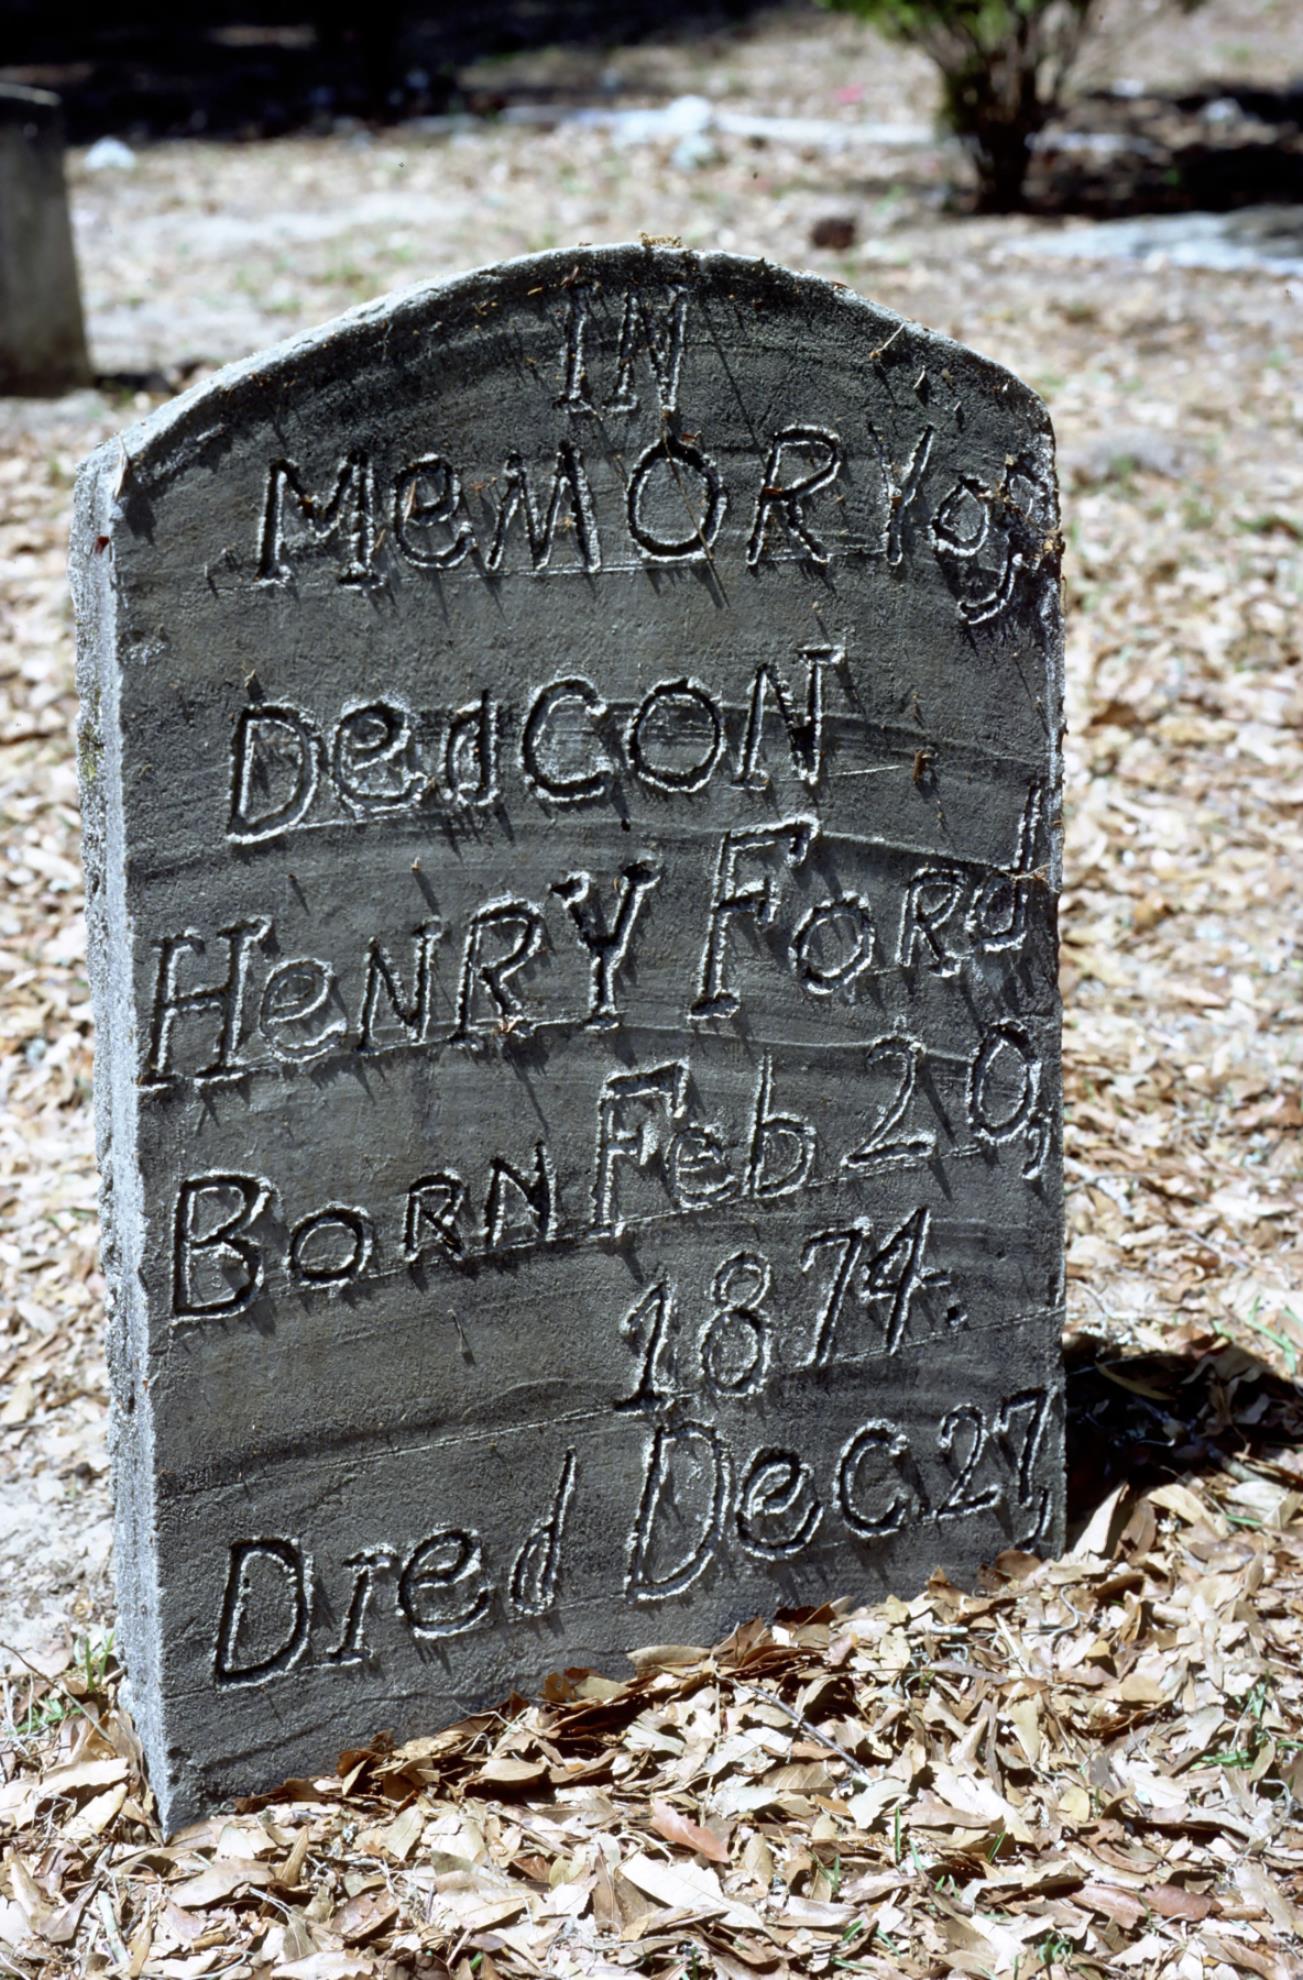 IN
MeMORY of
DeaCON
HeNRY FoRd
BoRN Feb 20,
1874.
Died DeC 27,